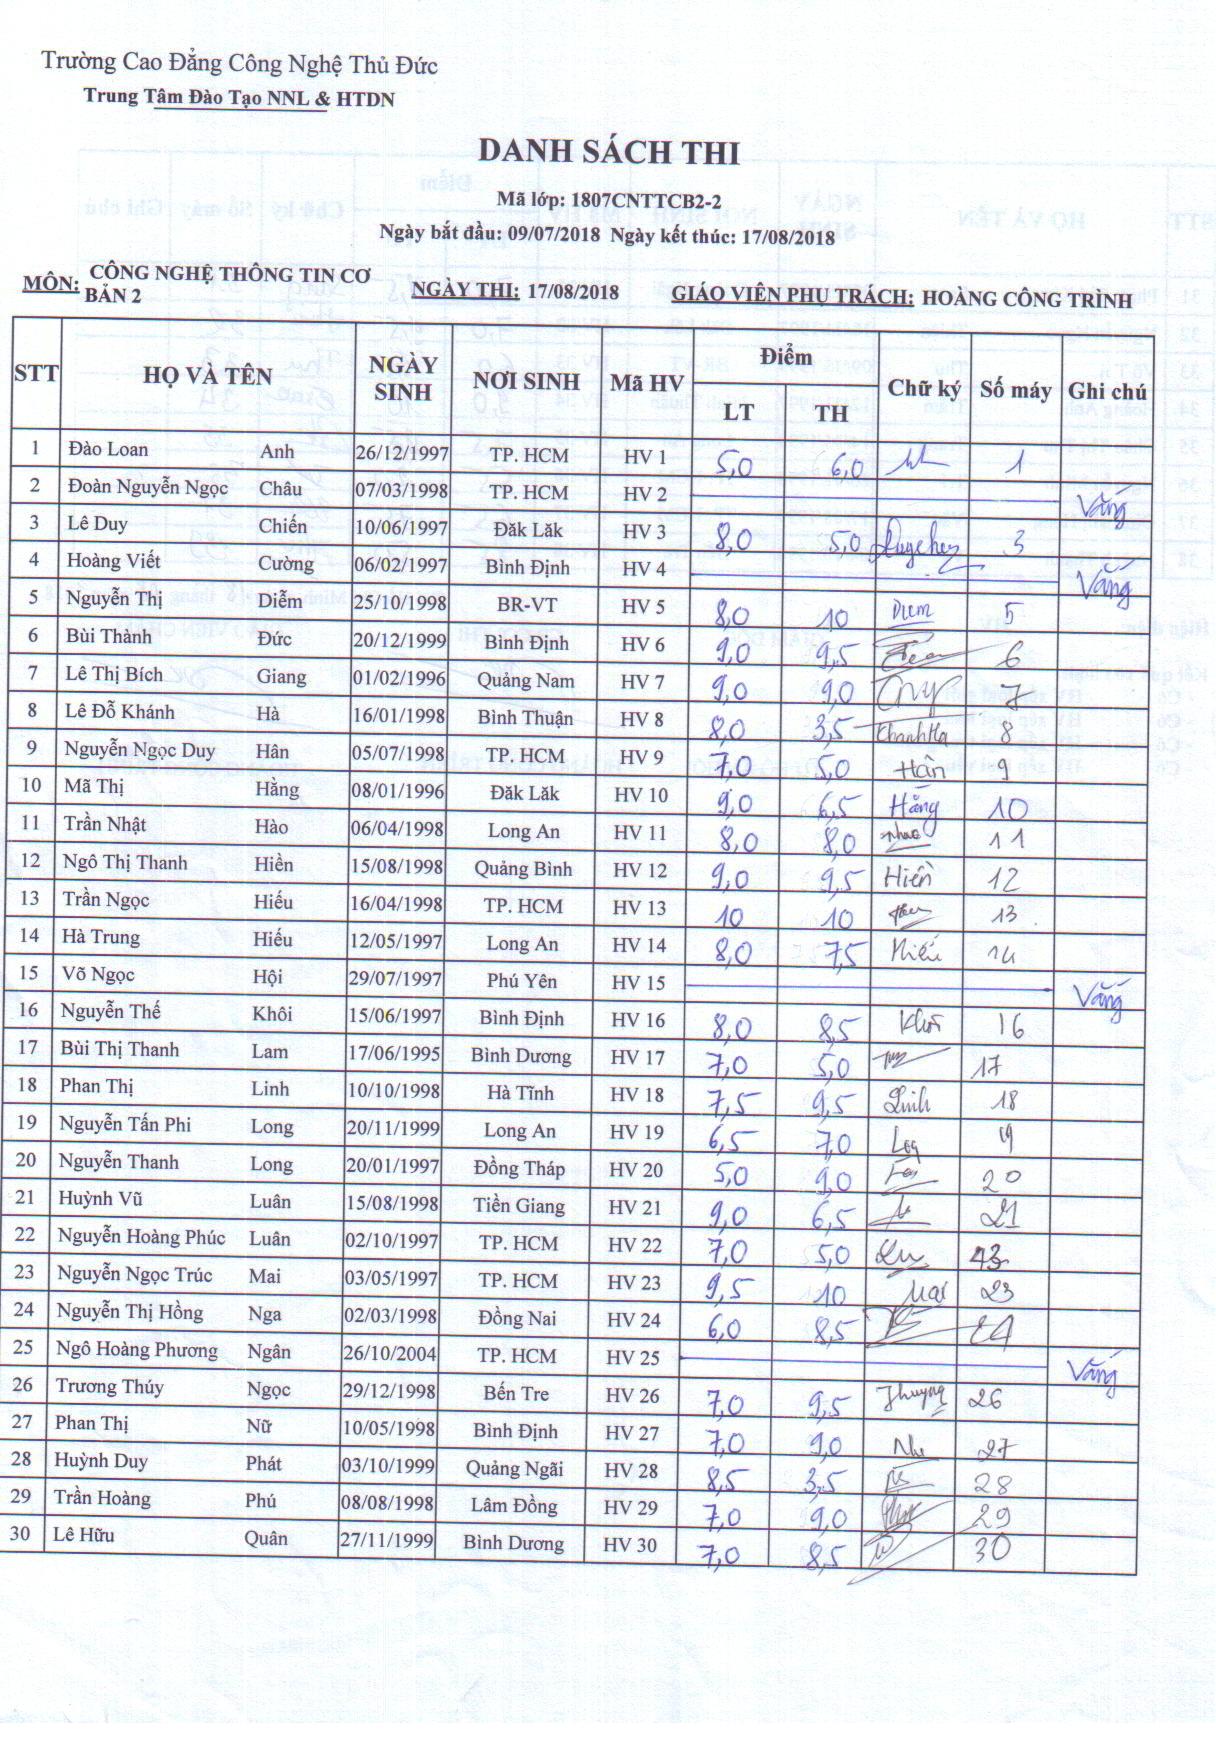 Trường Cao Đẳng Công Nghệ Thủ Đức
Trung Tâm Đào Tạo NNL & HTDN
DANH SÁCH THI
Mã lớp: 1807CNTTCB2-2
Ngày bắt đầu: 09/07/2018 Ngày kết thúc: 17/08/2018
MÔN: CÔNG NGHỆ THÔNG TIN CƠ BẢN 2 NGÀY THI: 17/08/2018 GIÁO VIÊN PHỤ TRÁCH: HOÀNG CÔNG TRÌNH
STT HỌ VÀ TÊN NGÀY SINH NƠI SINH Mã HV Điểm Chữ ký Số máy Ghi chú
LT TH
1 Đào Loan Anh 26/12/1997 TP. HCM HV 1 5,0 6,0 1
2 Đoàn Nguyễn Ngọc Châu 07/03/1998 TP. HCM HV 2 Vắng
3 Lê Duy Chiến 10/06/1997 Đăk Lăk HV 3 8,0 5,0 3
4 Hoàng Viết Cường 06/02/1997 Bình Định HV 4 Vắng
5 Nguyễn Thị Diễm 25/10/1998 BR-VT HV 5 8,0 10 Diem 5
6 Bùi Thành Đức 20/12/1999 Bình Định HV 6 9,0 9,5 6
7 Lê Thị Bích Giang 01/02/1996 Quảng Nam HV 7 9,0 9,0
8 Lê Đỗ Khánh Hà 16/01/1998 Bình Thuận HV 8 8,0 3,5 KhanhHa 8
9 Nguyễn Ngọc Duy Hân 05/07/1998 TP. HCM HV 9 7,0 5,0 Hân 9
10 Mã Thị Hằng 08/01/1996 Đăk Lăk HV 10 9,0 6,5 Hằng 10
11 Trần Nhật Hào 06/04/1998 Long An HV 11 8,0 8,0 11
12 Ngô Thị Thanh Hiền 15/08/1998 Quảng Bình HV 12 9,0 9,5 Hiền 12
13 Trần Ngọc Hiếu 16/04/1998 TP. HCM HV 13 10 10 13
14 Hà Trung Hiếu 12/05/1997 Long An HV 14 8,0 7,5 Hiếu 14
15 Võ Ngọc Hội 29/07/1997 Phú Yên HV 15 Vắng
16 Nguyễn Thế Khôi 15/06/1997 Bình Định HV 16 8,0 8,5 Khôi 16
17 Bùi Thị Thanh Lam 17/06/1995 Bình Dương HV 17 7,0 5,0 17
18 Phan Thị Linh 10/10/1998 Hà Tĩnh HV 18 7,5 9,5 Linh 18
19 Nguyễn Tấn Phi Long 20/11/1999 Long An HV 19 6,5 7,0 19
20 Nguyễn Thanh Long 20/01/1997 Đồng Tháp HV 20 5,0 9,0 20
21 Huỳnh Vũ Luân 15/08/1998 Tiền Giang HV 21 9,0 6,5 21
22 Nguyễn Hoàng Phúc Luân 02/10/1997 TP. HCM HV 22 7,0 5,0
23 Nguyễn Ngọc Trúc Mai 03/05/1997 TP. HCM HV 23 9,5 10 Mai 23
24 Nguyễn Thị Hồng Nga 02/03/1998 Đồng Nai HV 24 6,0 8,5 24
25 Ngô Hoàng Phương Ngân 26/10/2004 TP. HCM HV 25 Vắng
26 Trương Thúy Ngọc 29/12/1998 Bến Tre HV 26 7,0 9,5 26
27 Phan Thị Nữ 10/05/1998 Bình Định HV 27 7,0 9,0 27
28 Huỳnh Duy Phát 03/10/1999 Quảng Ngãi HV 28 8,5 3,5 28
29 Trần Hoàng Phú 08/08/1998 Lâm Đồng HV 29 7,0 9,0 29
30 Lê Hữu Quân 27/11/1999 Bình Dương HV 30 7,0 8,5 30